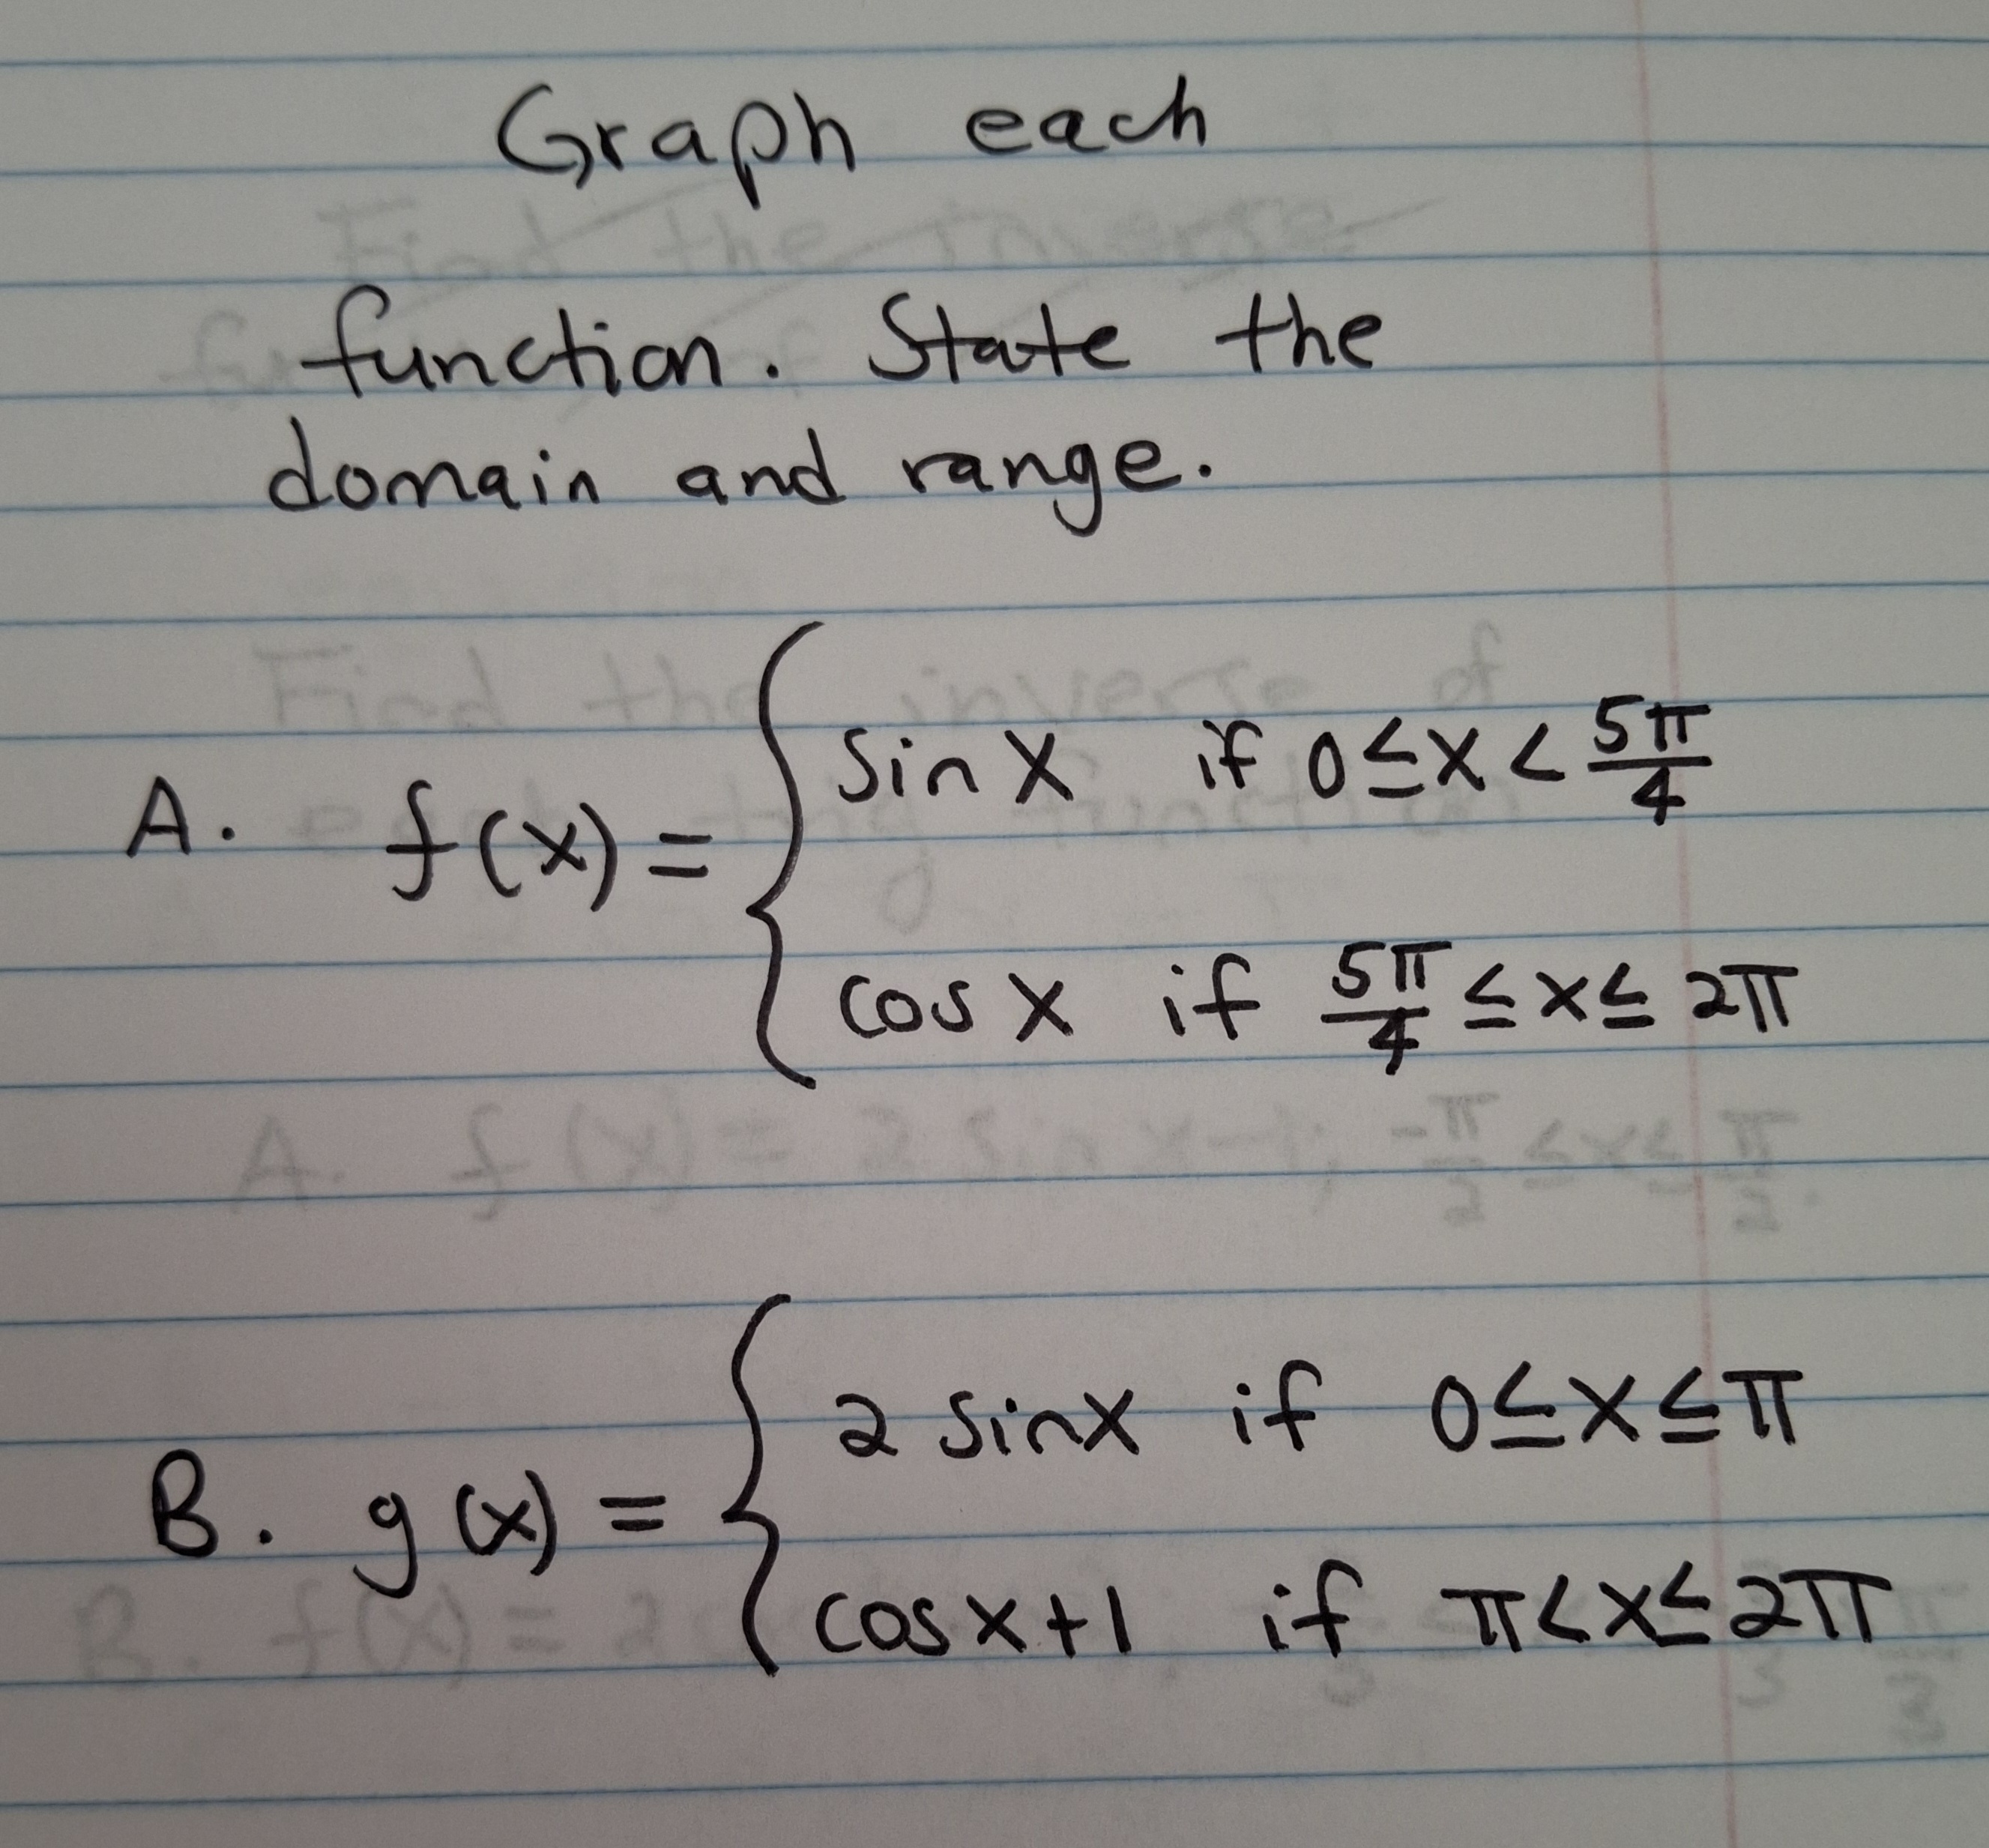 Graph each
function. State the
domain and range.
A. f(x) = { sin x if 0 ≤ x < 5π/4
cos x if 5π/4 ≤ x ≤ 2π
B. g(x) = { 2 sin x if 0 ≤ x ≤ π
cos x + 1 if π < x ≤ 2π